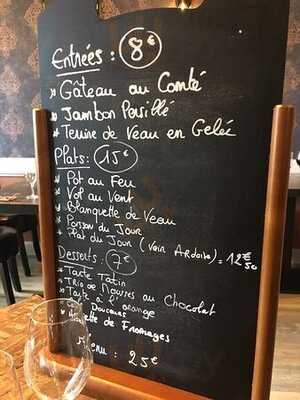 Entrées : 8€
* Gâteau au Comté
* Jambon Persillé
* Terrine de Veau en Gelée
Plats : 15€
* Pot au Feu
* Vol au Vent
* Blanquette de Veau
* Poisson du Jour
* Plat du Jour (Voir Ardoise) = 12€50
Desserts : 7€
* Tarte Tatin
* Trio de Mousses au Chocolat
* Tarte à l'orange
Douceurs
Assiette de Fromages
Menu : 25€